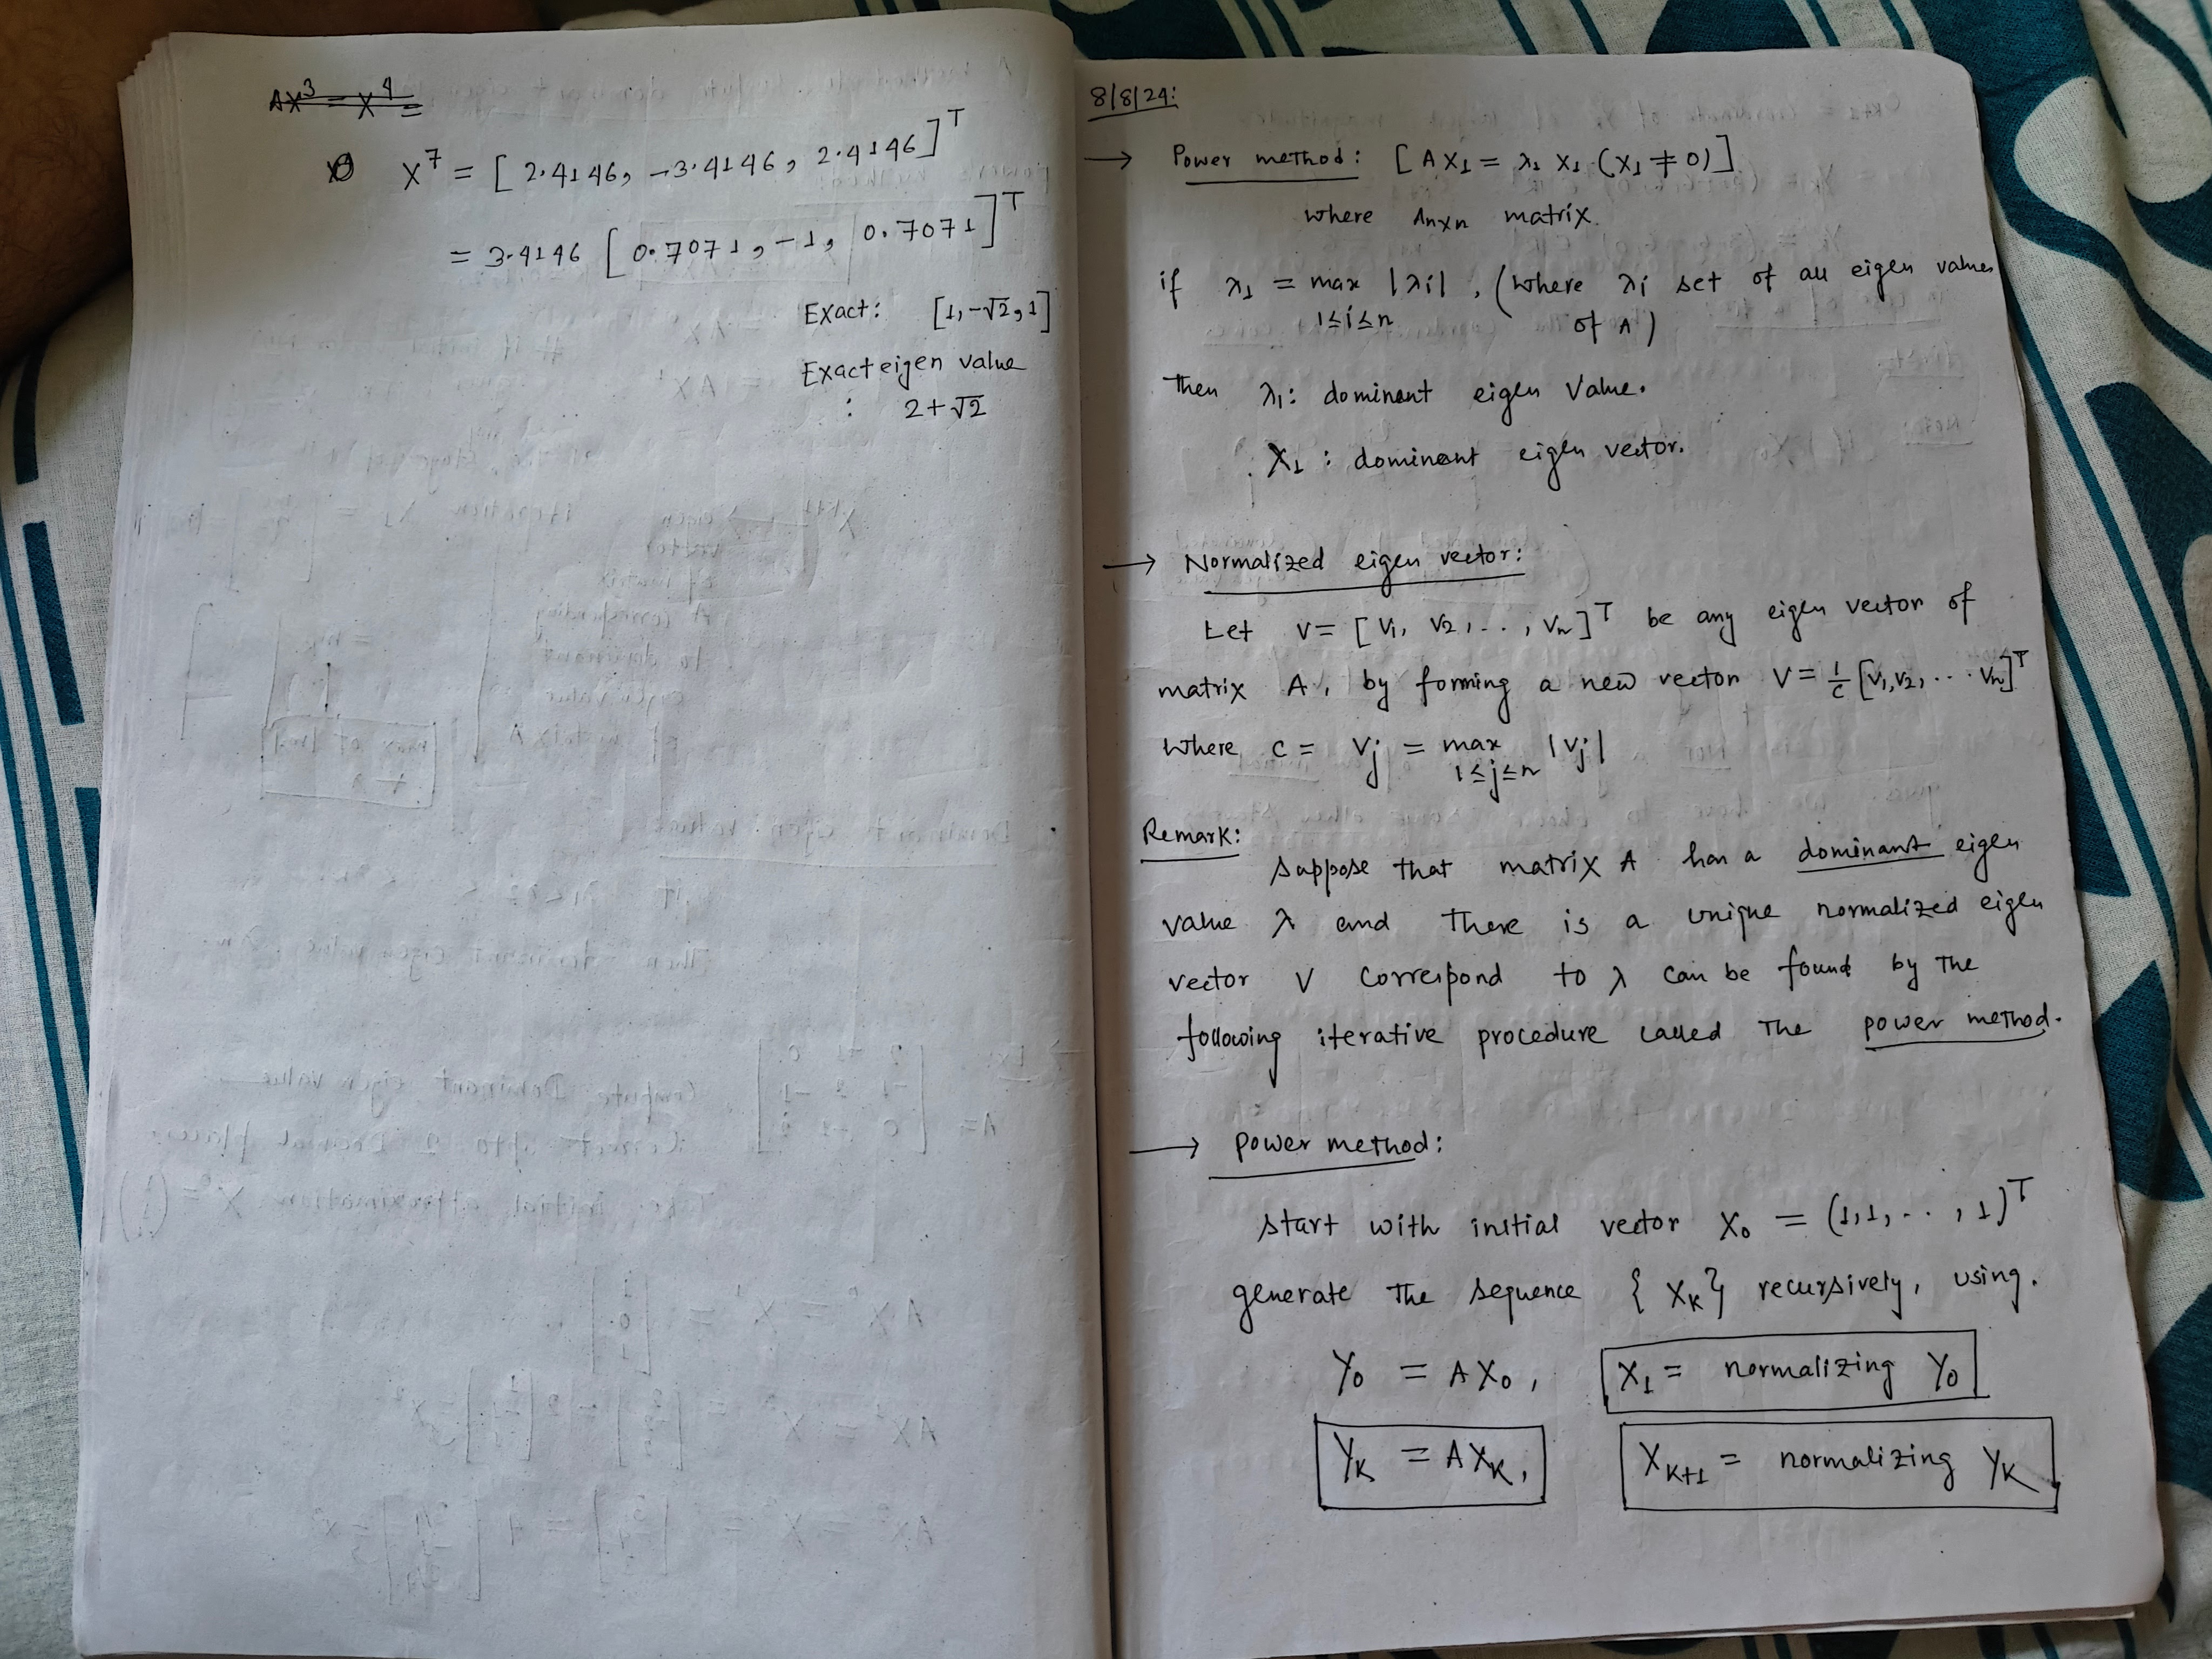 AX³ = X⁴ =
X⁷ = [ 2.4146, -3.4146, 2.4146 ]ᵀ
= 3.4146 [ 0.7071, -1, 0.7071 ]ᵀ
Exact: [1, -√2, 1]
Exact eigen value
: 2+√2
8/8/24:
→ Power method: [ AX₁ = λ₁ X₁ (X₁ ≠ 0) ]
where Anxn matrix.
if λ₁ = max |λi| , (where λi set of all eigen values
1≤i≤n of A)
Then λ₁: dominent eigen value.
X₁ : dominent eigen vector.
→ Normalized eigen vector:
Let v = [ v₁, v₂, .. , vₙ ]ᵀ be any eigen vector of
matrix A, by forming a new vector V = 1/c [v₁, v₂, ... vₙ]ᵀ
where c = vj = max |vj|
1≤j≤n
Remark:
Suppose that matrix A has a dominant eigen
value λ and there is a unique normalized eigen
vector V correspond to λ can be found by the
following iterative procedure called the power method.
→ power method:
start with initial vector X₀ = (1,1, .. , 1)ᵀ
generate the sequence { Xₖ } recursively, using.
Y₀ = AX₀, X₁ = normalizing Y₀
Yₖ = AXₖ, Xₖ₊₁ = normalizing Yₖ